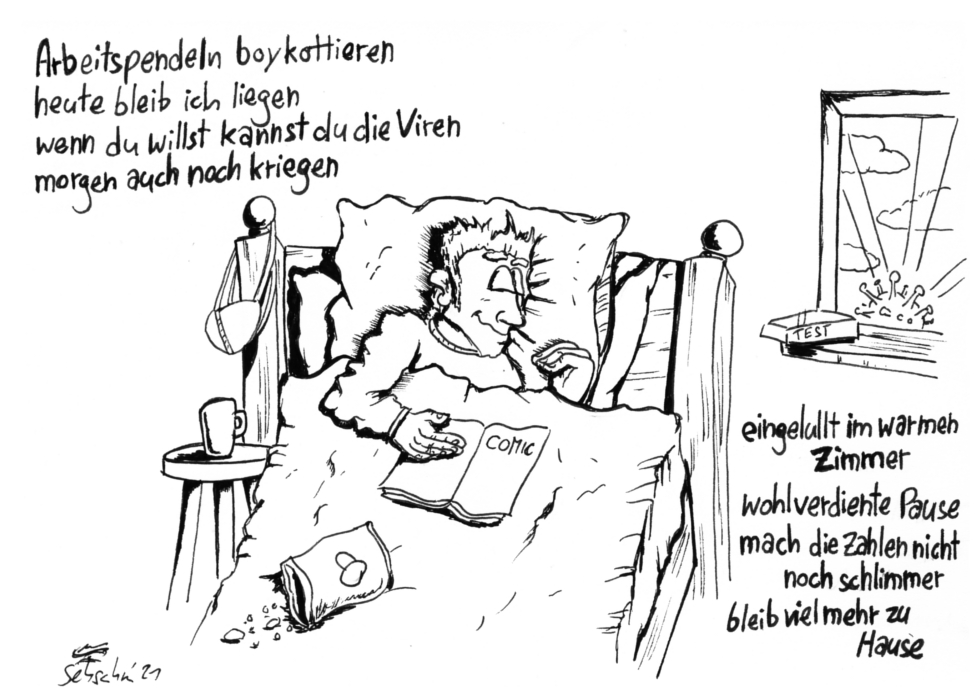 Arbeitspendeln boykottieren
heute bleib ich liegen
wenn du willst kannst du die Viren
morgen auch noch kriegen
TEST
COMIC
eingelullt im warmen
Zimmer
wohlverdiente Pause
mach die Zahlen nicht
noch schlimmer
bleib viel mehr zu
Hause